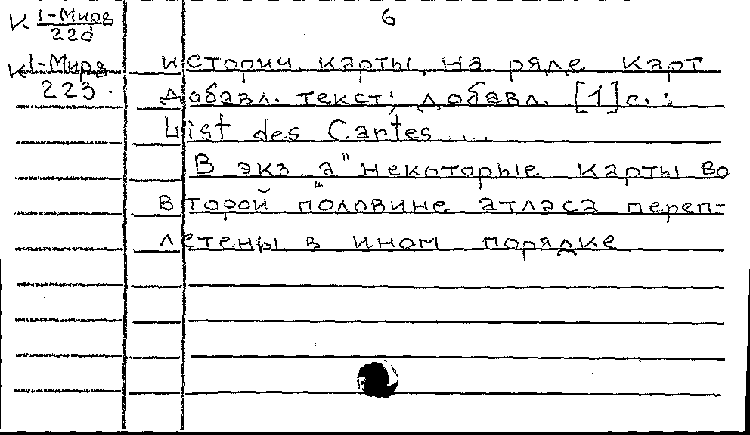 К 1-Мира
220
6
К 1-Мира
223.
историч. карты, на ряде карт
добавл. текст; добавл. [1]с.:
List des Cartes...
В экз „а" некоторые карты во
второй половине атласа переп-
летены в ином порядке